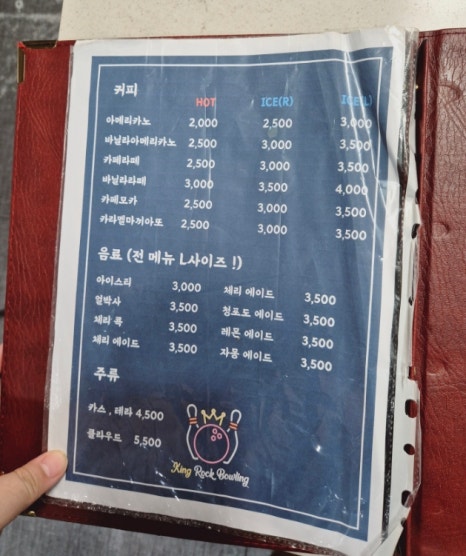 커피
HOT ICE(R) ICE(L)
아메리카노 2,000 2,500 3,000
바닐라아메리카노 2,500 3,000 3,500
카페라떼 2,500 3,000 3,500
바닐라라떼 3,000 3,500 4,000
카페모카 2,500 3,000 3,500
카라멜마끼아또 2,500 3,000 3,500
음료 (전 메뉴 L사이즈 !)
아이스티 3,000 체리 에이드 3,500
얼박사 3,500 청포도 에이드 3,500
체리 콕 3,500 레몬 에이드 3,500
체리 에이드 3,500 자몽 에이드 3,500
주류
카스 , 테라 4,500
클라우드 5,500
King Rock Bowling